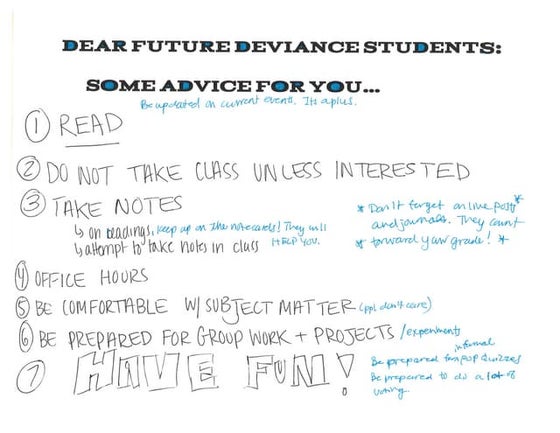 DEAR FUTURE DEVIANCE STUDENTS:
SOME ADVICE FOR YOU...
Be updated on current events. It's a plus.
① READ
② DO NOT TAKE CLASS UNLESS INTERESTED
③ TAKE NOTES
↳ on readings, keep up on the notecards! They will HELP YOU.
↳ attempt to take notes in class
* Don't forget online posts *
and journals. They count
* toward your grade! *
④ OFFICE HOURS
⑤ BE COMFORTABLE W/ SUBJECT MATTER (ppl don't care)
⑥ BE PREPARED FOR GROUP WORK + PROJECTS /experiments
⑦ HAVE FUN!
informal
Be prepared for pop quizzes
Be prepared to do a lot of
voting.